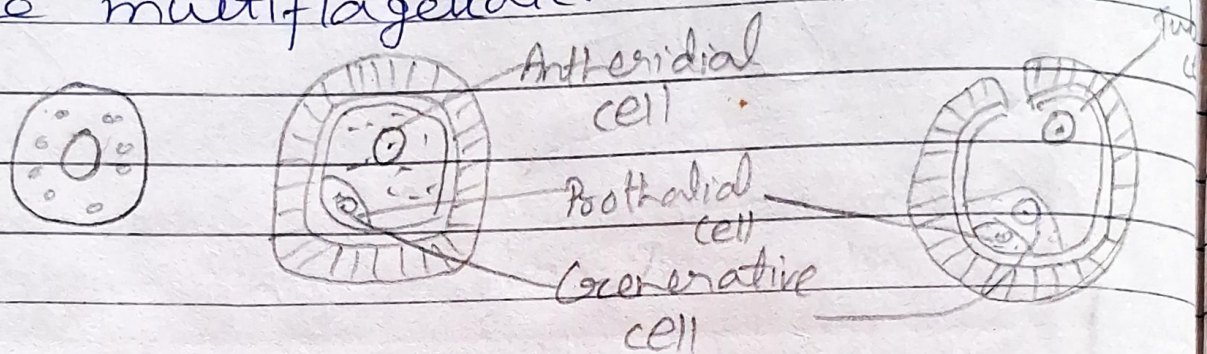 multiflagellate
Antheridial
cell
Prothalial
cell
Generative
cell